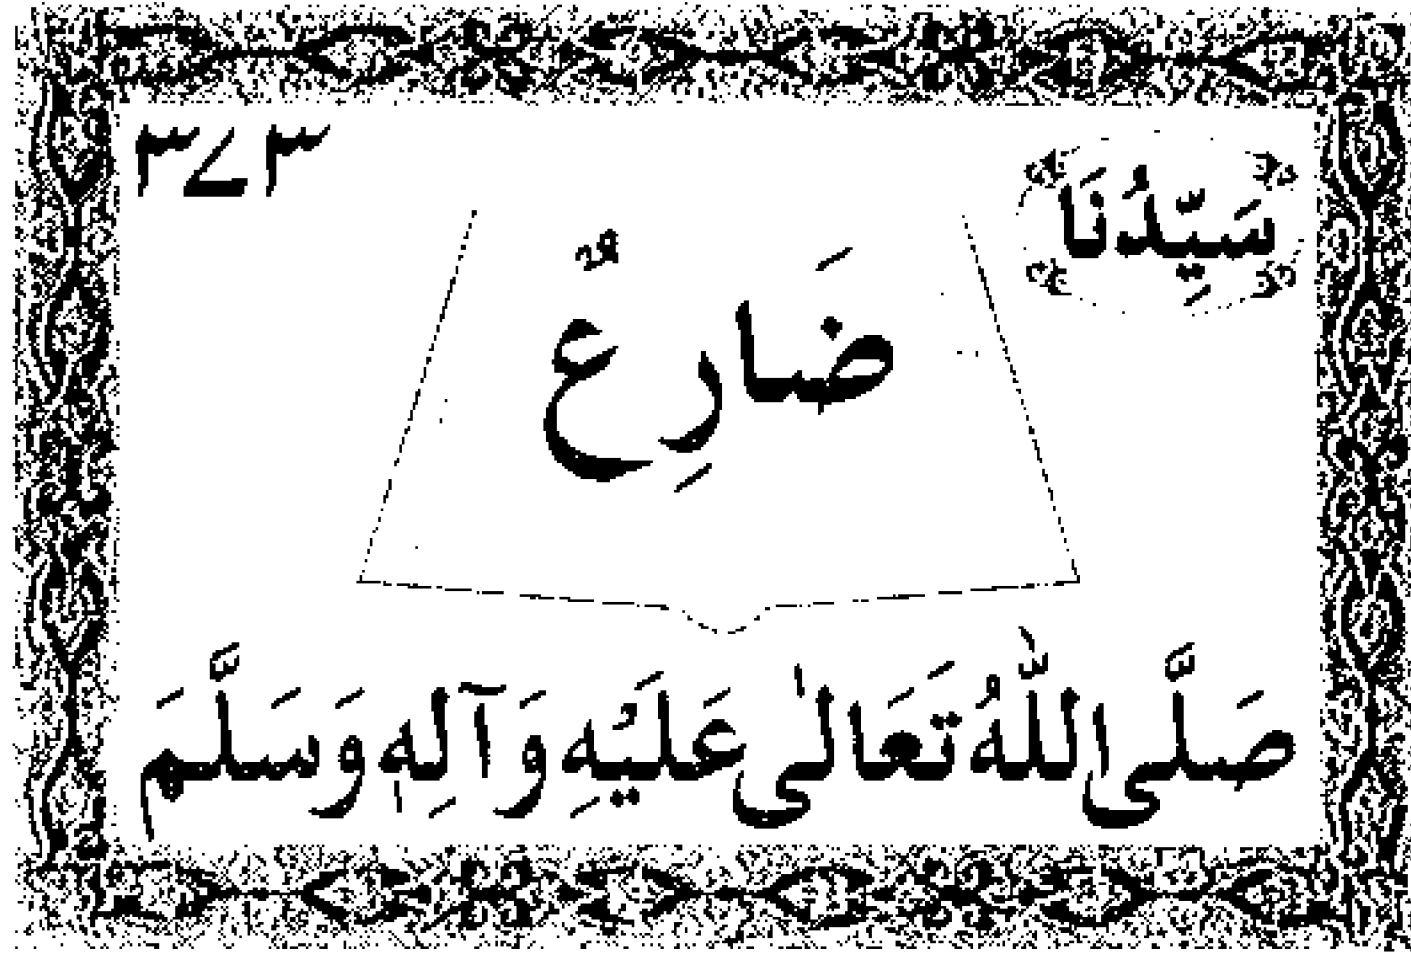 ۳۷۳
سَيِّدُنَا
ضَارِعٌ
صَلَّى اللّٰهُ تَعَالٰى عَلَيْهِ وَآلِهٖ وَسَلَّمَ